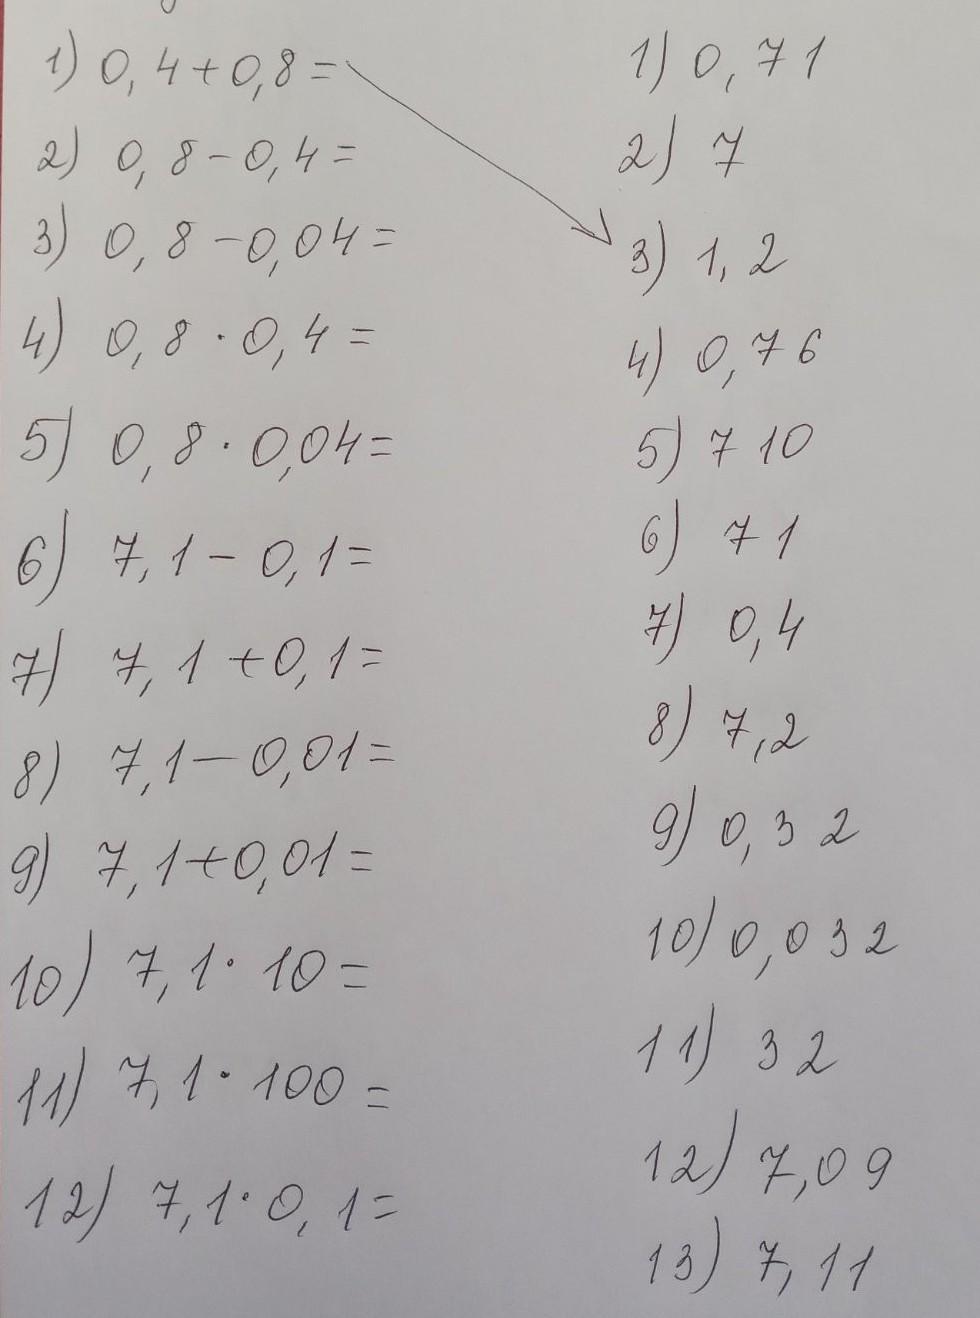 1) 0,4+0,8=
2) 0,8-0,4=
3) 0,8-0,04=
4) 0,8·0,4=
5) 0,8·0,04=
6) 7,1-0,1=
7) 7,1+0,1=
8) 7,1-0,01=
9) 7,1+0,01=
10) 7,1·10=
11) 7,1·100=
12) 7,1·0,1=
1) 0,71
2) 7
3) 1,2
4) 0,76
5) 710
6) 71
7) 0,4
8) 7,2
9) 0,32
10) 0,032
11) 32
12) 7,09
13) 7,11